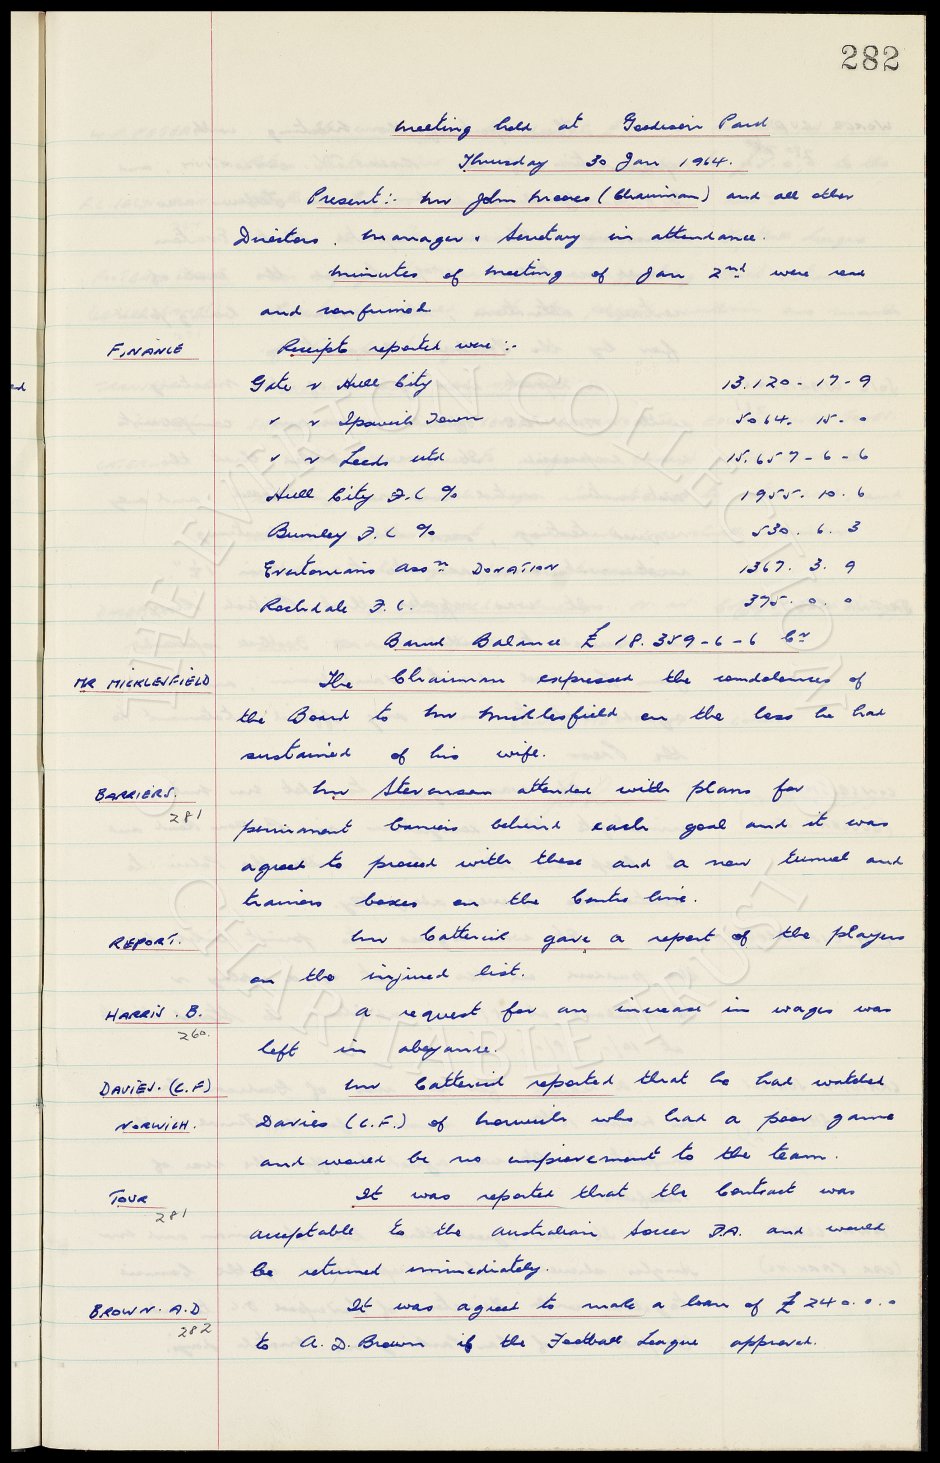 282
Meeting held at Goodison Park
Thursday 30 Jan 1964.
Present:- Mr John Moores (Chairman) and all other
Directors. Manager & Secretary in attendance.
Minutes of meeting of Jan 2nd were read
and confirmed
FINANCE Receipts reported were :-
Gate v Hull City 13.120 - 17 - 9
" v Ipswich Town 5064. 15. 0
" v Leeds Utd 15.657 - 6 - 6
Hull City F.C % 1955. 10. 6
Burnley F.C % 530. 6. 3
Evertonians Assn DONATION 1367. 3. 9
Rochdale F.C. 375. 0. 0
Bank Balance £ 18.359-6-6 Cr
MR MICKLESFIELD The Chairman expressed the condolences of
the Board to Mr Micklesfield on the loss he had
sustained of his wife.
BARRIERS. Mr Stevenson attended with plans for
281
perminant barriers behind each goal and it was
agreed to proceed with these and a new tunnel and
trainers boxes on the Centre line.
REPORT. Mr Catterick gave a report of the players
on the injured list.
HARRIS. B. A request for an increase in wages was
260.
left in abeyance.
DAVIES. (C.F) Mr Catterick reported that he had watched
NORWICH. Davies (C.F.) of Norwich who had a poor game
and would be no improvement to the team.
TOUR It was reported that the Contract was
281
acceptable to the Australian Soccer F.A. and would
be returned immediately.
BROWN. A.D It was agreed to make a loan of £240.0.0
282
to A.D. Brown if the Football League approved.
ed
THE EVERTON COLLECTION
CHARITABLE TRUST